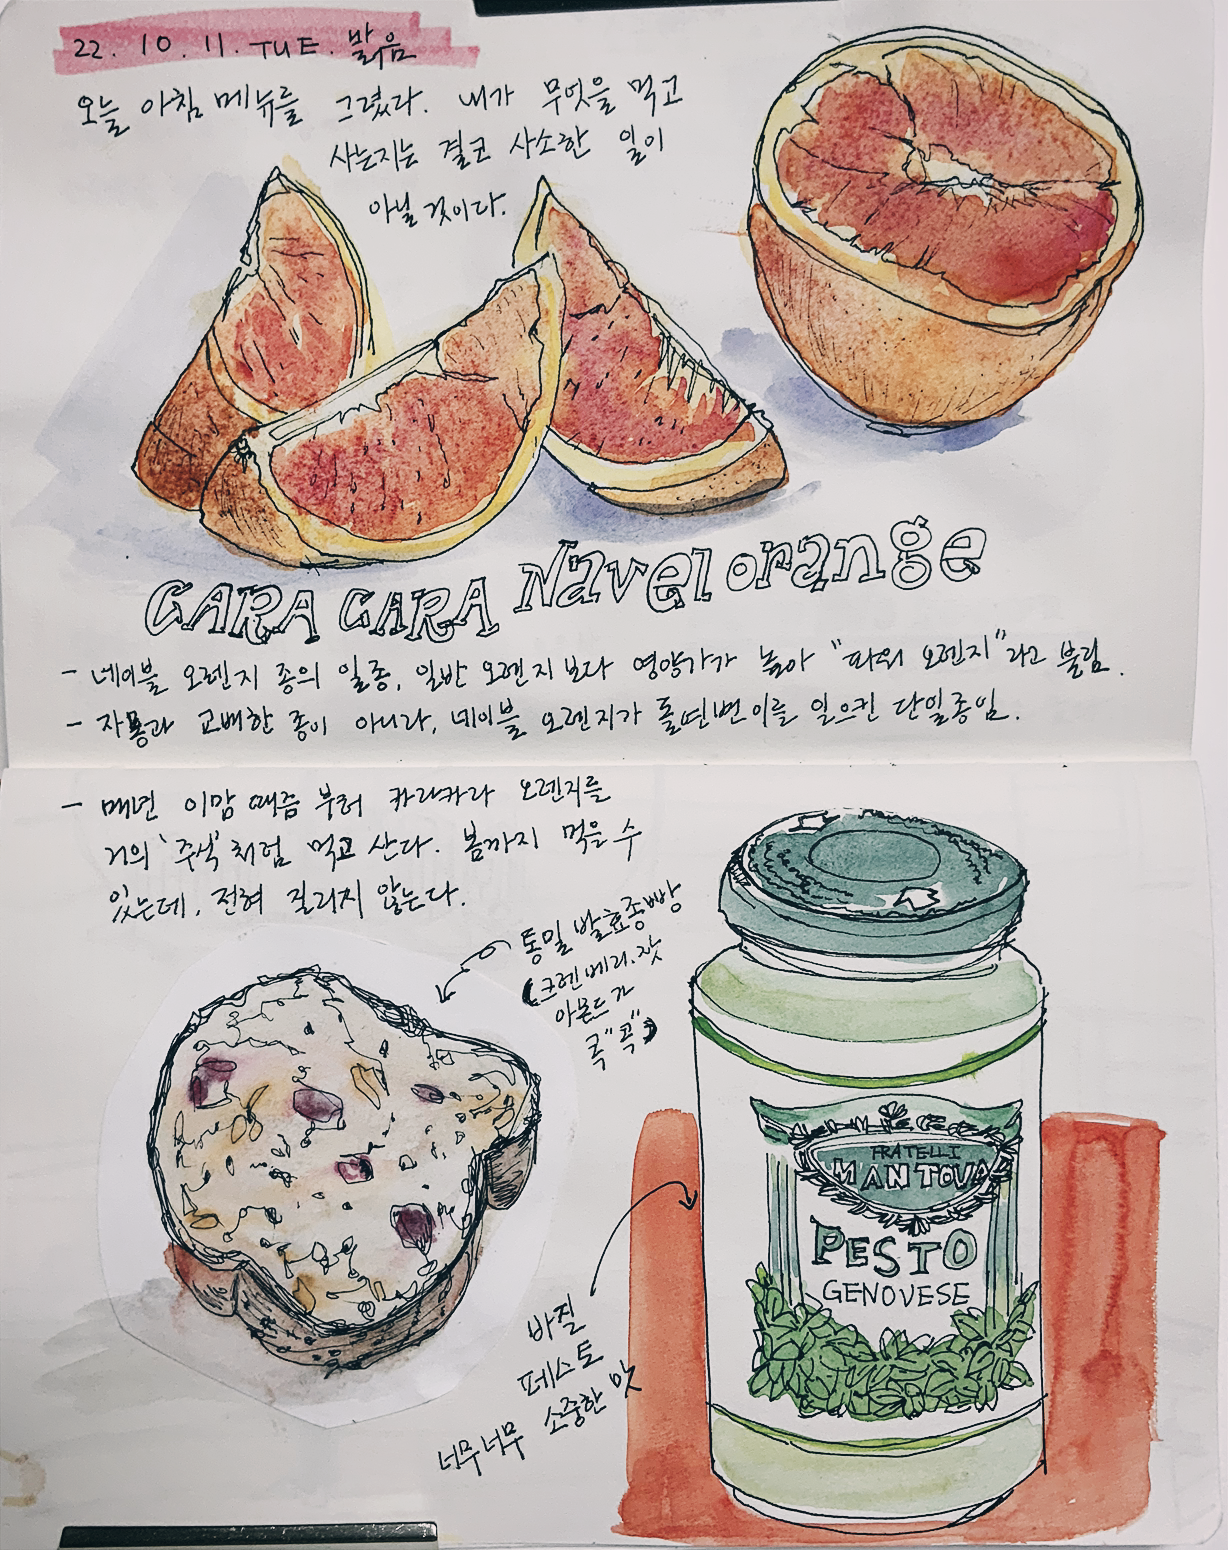 22. 10. 11. TUE. 밝음
오늘 아침 메뉴를 그렸다. 내가 무엇을 먹고
사는지는 결코 사소한 일이
아닐 것이다.
CARA CARA Navel orange
- 네이블 오렌지 종의 일종, 일반 오렌지보다 영양가가 높아 "파워 오렌지"라고 불림.
- 자몽과 교배한 종이 아니라, 네이블 오렌지가 돌연변이를 일으킨 단일종임.
- 매년 이맘 때쯤 부터 카라카라 오렌지를
거의 '주식'처럼 먹고 산다. 봄까지 먹을 수
있는데, 전혀 질리지 않는다.
통밀 발효종빵
(크렌베리, 잣
아몬드가
콕"콕")
FRATELLI
MANTOVA
PESTO
GENOVESE
바질
페스토
너무너무 소중한 맛